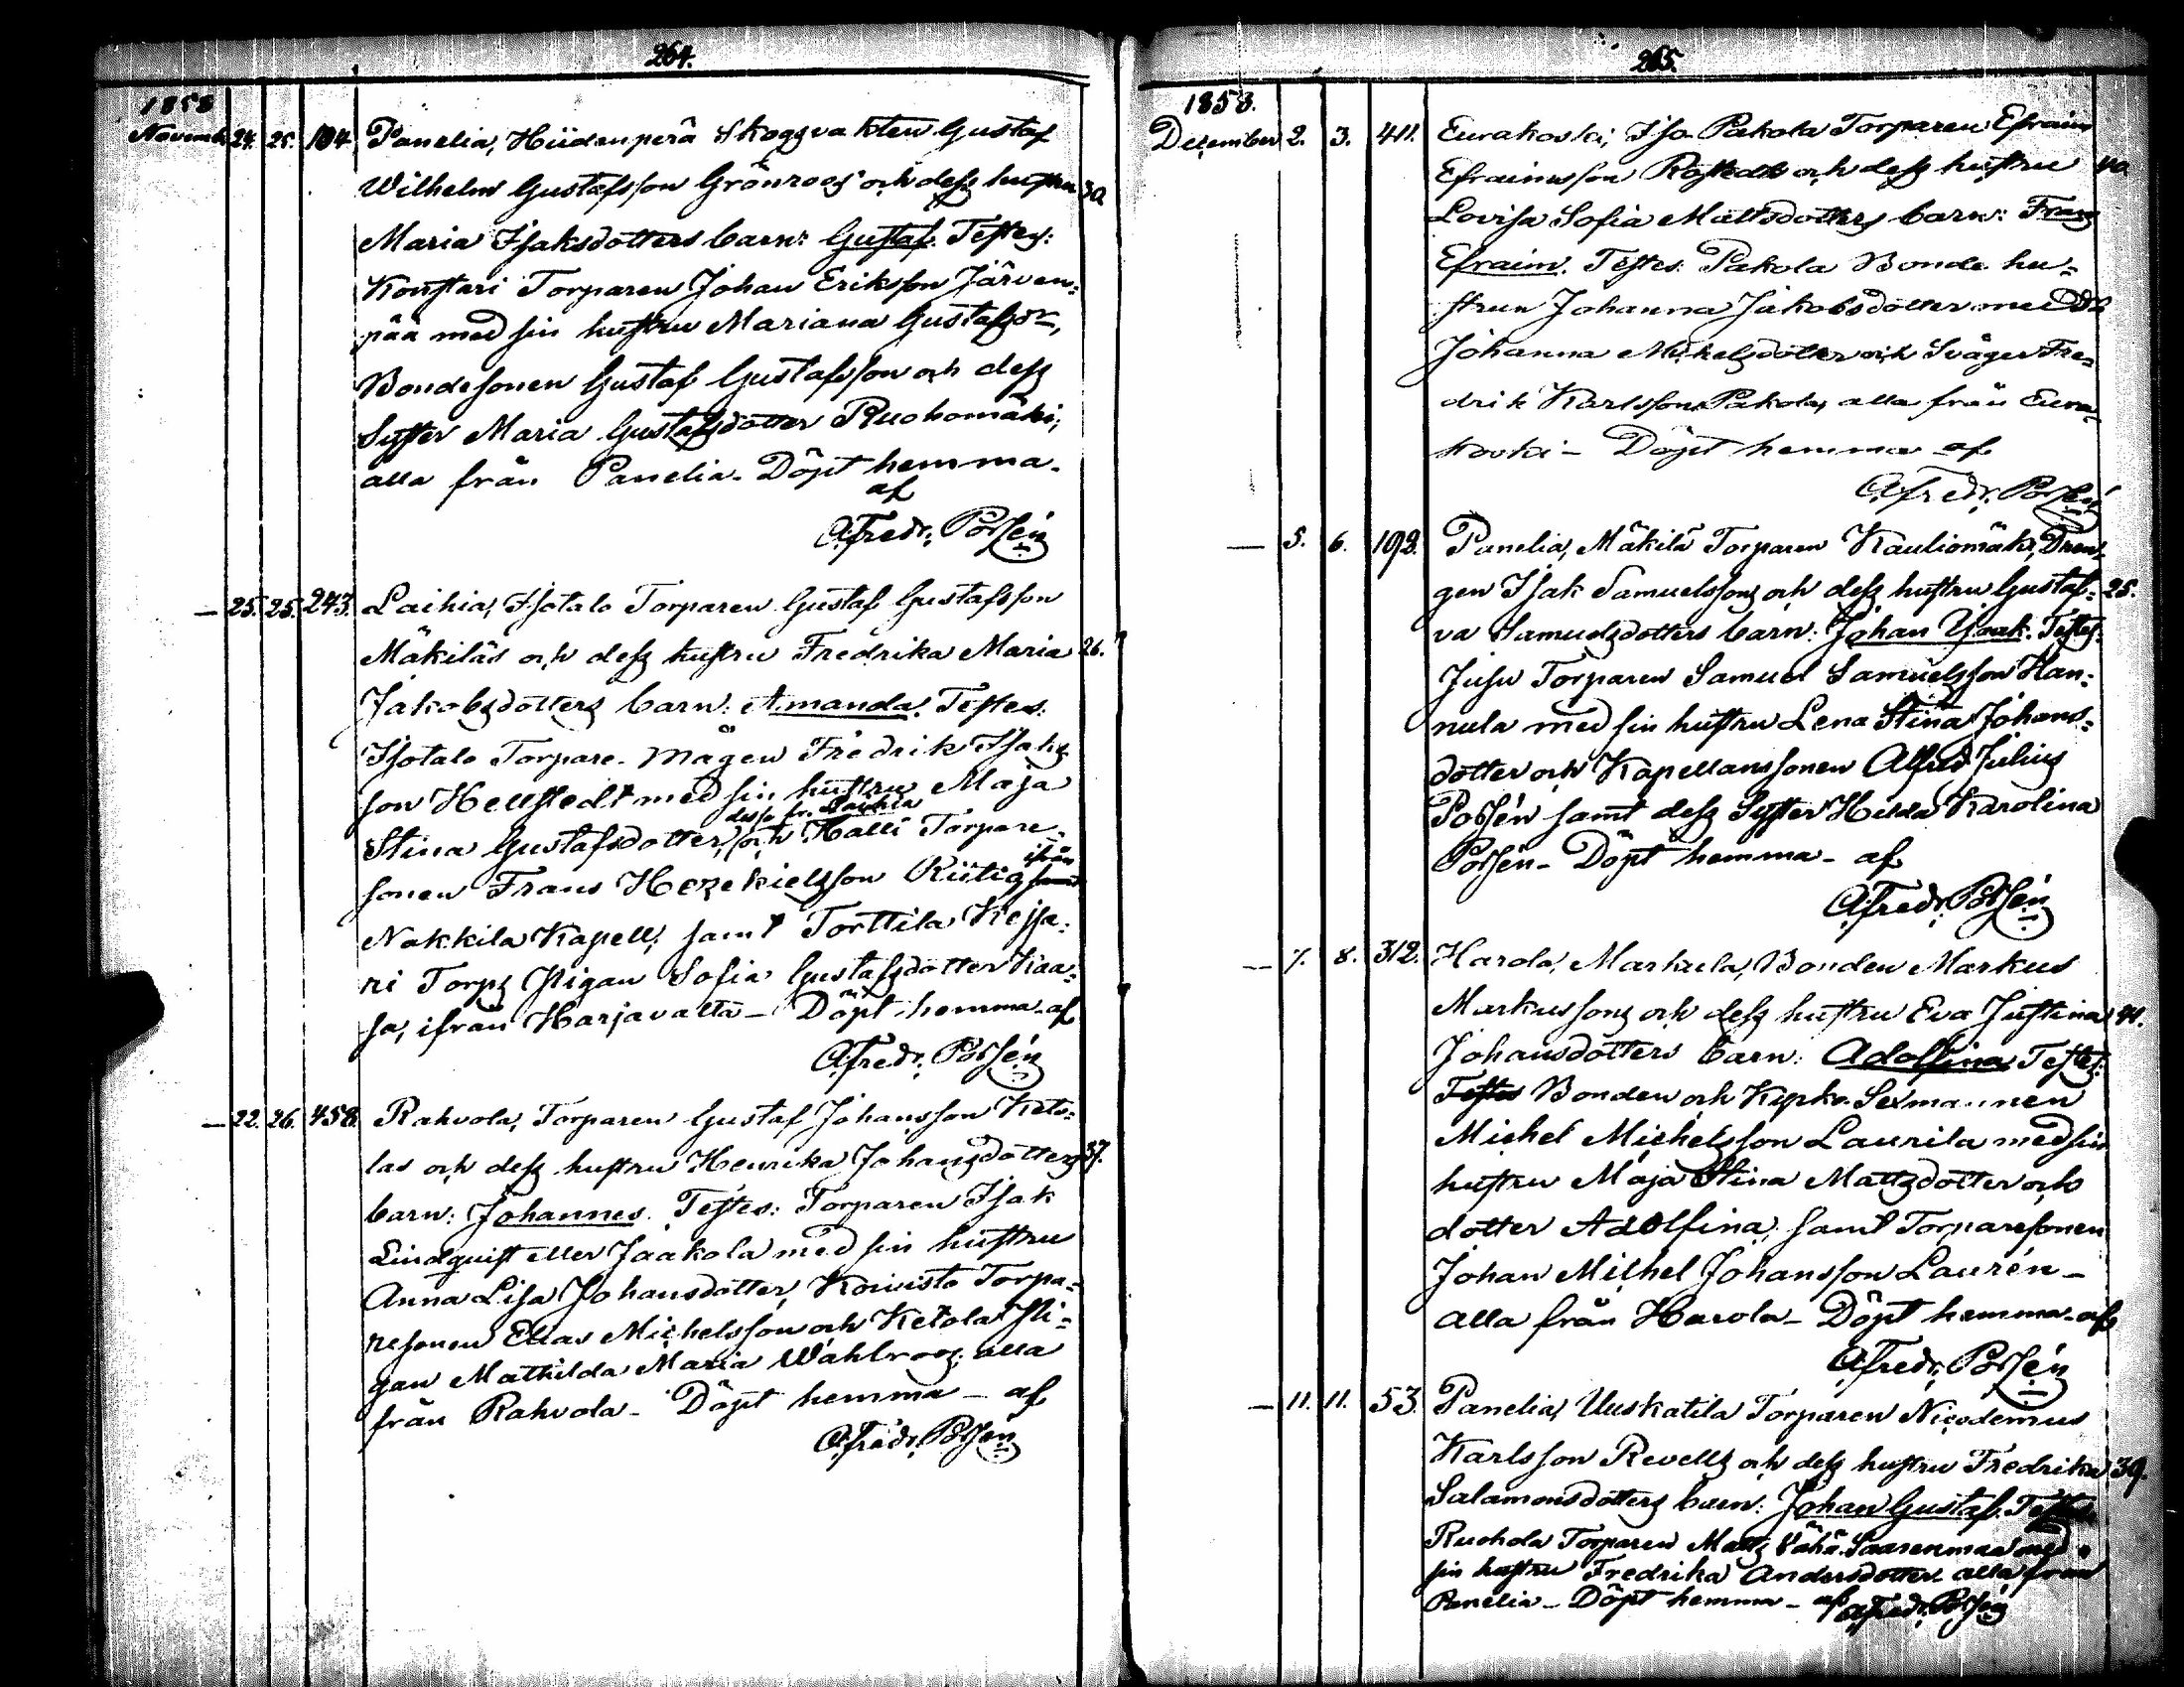 264.
1858
Novemb. 24. 25. 104. Panelia, Hiidenperä Skoggvakten Gustaf
Wilhelm Gustafsson Grönroos och dess hustru 30.
Maria Isaksdotters barn: Gustaf. Testes:
Konstari Torparen Johan Eriksson Järven=
pää med sin hustru Mariana Gustafsdr,
Bondesonen Gustaf Gustafsson och dess
Syster Maria Gustafsdotter Ruohomäki,
alla från Panelia. Döpt hemma.
af
A. Fredr. Polsén
— 25. 25. 243. Laihia, Isotalo Torparen Gustaf Gustafsson
Mäkiläs och dess hustru Fredrika Maria 26.
Jakobsdotters barn: Amanda. Testes:
Isotalo Torpare-mågen Fredrik Isaks
son Hellstedt med sin hustru Maja
desse fr. Laihia
Stina Gustafsdotter, och Halli Torpare=
sonen Frans Hezekielsson Riitig ifrån
Nakkila Kapell, samt Torttila Kejsa=
ri Torps Pigan Sofia Gustafsdotter Kaa=
sa, ifrån Harjavalta — Döpt hemma af
A. Fredr. Polsén
— 22. 26. 458. Rahvola, Torparen Gustaf Johansson Keto=
las och dess hustru Henrika Johansdotters 37.
barn: Johannes. Testes: Torparen Isak
Lindquist eller Jaakola med sin hustru
Anna Lisa Johansdotter, Koivisto Torpa=
resonen Elias Michelsson och Ketola Pi=
gan Mathilda Maria Wahlroos; alla
från Rahvola — Döpt hemma — af
A. Fredr. Polsén
265.
1858.
December 2. 3. 411. Eurakoski, Iso Pakola Torparen Efraim
Efraimsson Rostedts och dess hustru 40.
Lovisa Sofia Mattsdotters barn: Frans
Efraim. Testes: Pakola Bonde hu=
strun Johanna Jakobsdotter med
Johanna Mickelsdotter och Svåger Fre=
drik Karlsson Pakola, alla från Eura=
koski — Döpt hemma af
A. Fredr. Polsén
— 5. 6. 192. Panelia, Mäkilä Torparen Kauliomäki, Dren=
gen Isak Samuelssons och dess hustru Gustaf= 25.
va Samuelsdotters barn: Johan Isaak. Testes:
Jusu Torparen Samuel Samuelsson Han=
nula med sin hustru Lena Stina Johans=
dotter och Kapellanssonen Alfred Julius
Polsén samt dess Syster Hilda Karolina
Polsén — Döpt hemma — af
A. Fredr. Polsén
— 7. 8. 312. Harola, Markula, Bonden Markus
Markussons och dess hustru Eva Justina 41.
Johansdotters barn: Adolfina Testes:
Testes Bonden och Kyrko Sexmannen
Michel Michelsson Laurila med sin
hustru Maja Stina Mattsdotter och
dotter Adolfina, samt Torparesonen
Johan Michel Johansson Laurén —
alla från Harola — Döpt hemma — af
A. Fredr. Polsén
— 11. 11. 53. Panelia, Uuskatila Torparen Nicodemus
Karlsson Revells och dess hustru Fredrika 39.
Salamonsdotters barn: Johan Gustaf. Testes:
Ruohola Torparen Matts Vähä-Saarenmaa med
sin hustru Fredrika Andersdotter alla från
Panelia — Döpt hemma — af A. Fredr. Polsén